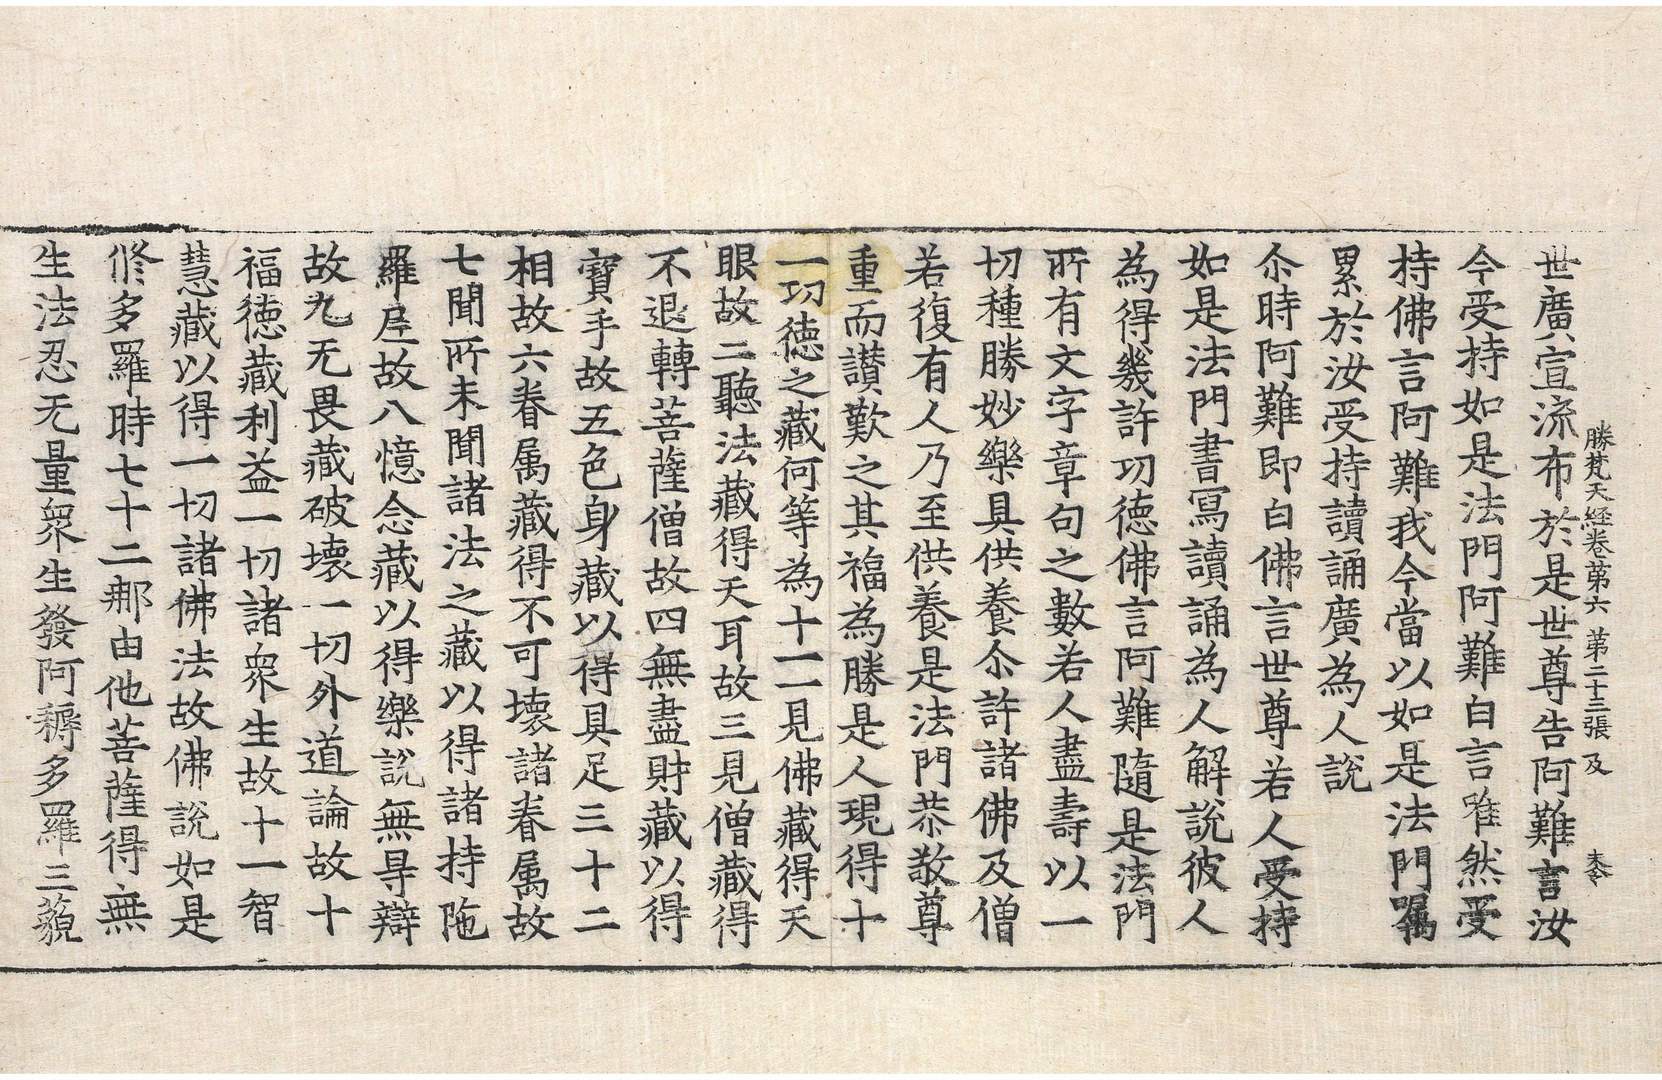 勝梵天經卷第六 第二十三張 及
世廣宣流布於是世尊告阿難言汝
今受持如是法門阿難白言唯然受
持佛言阿難我今當以如是法門囑
累於汝受持讀誦廣為人說
尒時阿難即白佛言世尊若人受持
如是法門書寫讀誦為人解說彼人
為得幾許功德佛言阿難隨是法門
所有文字章句之數若人盡壽以一
切種勝妙樂具供養尒許諸佛及僧
若復有人乃至供養是法門恭敬尊
重而讃歎之其福為勝是人現得十
一功德之藏何等為十一見佛藏得天
眼故二聽法藏得天耳故三見僧藏得
不退轉菩薩僧故四無盡財藏以得
寶手故五色身藏以得具足三十二
相故六眷属藏得不可壞諸眷属故
七聞所未聞諸法之藏以得諸持陁
羅尼故八憶念藏以得樂說無㝵辯
故九无畏藏破壞一切外道論故十
福徳藏利益一切諸衆生故十一智
慧藏以得一切諸佛法故佛說如是
修多羅時七十二那由他菩薩得無
生法忍无量衆生發阿耨多羅三藐